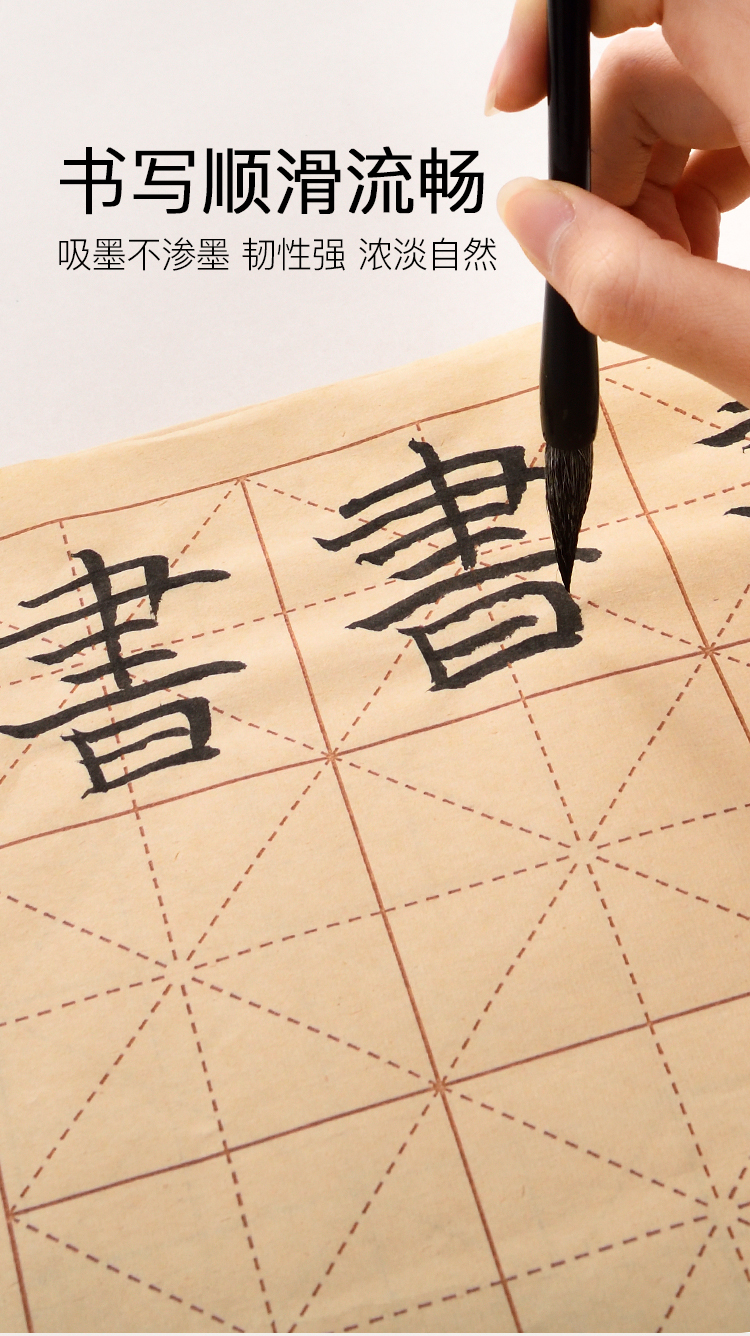 书写顺滑流畅
吸墨不渗墨 韧性强 浓淡自然
書 書